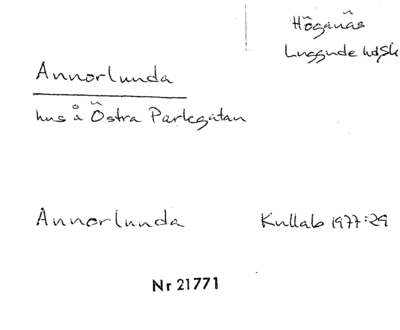 Höganäs
Luggude hdsk
Annorlunda
hus å Östra Parkgatan
Annorlunda Kullab 1977:29
Nr 21771